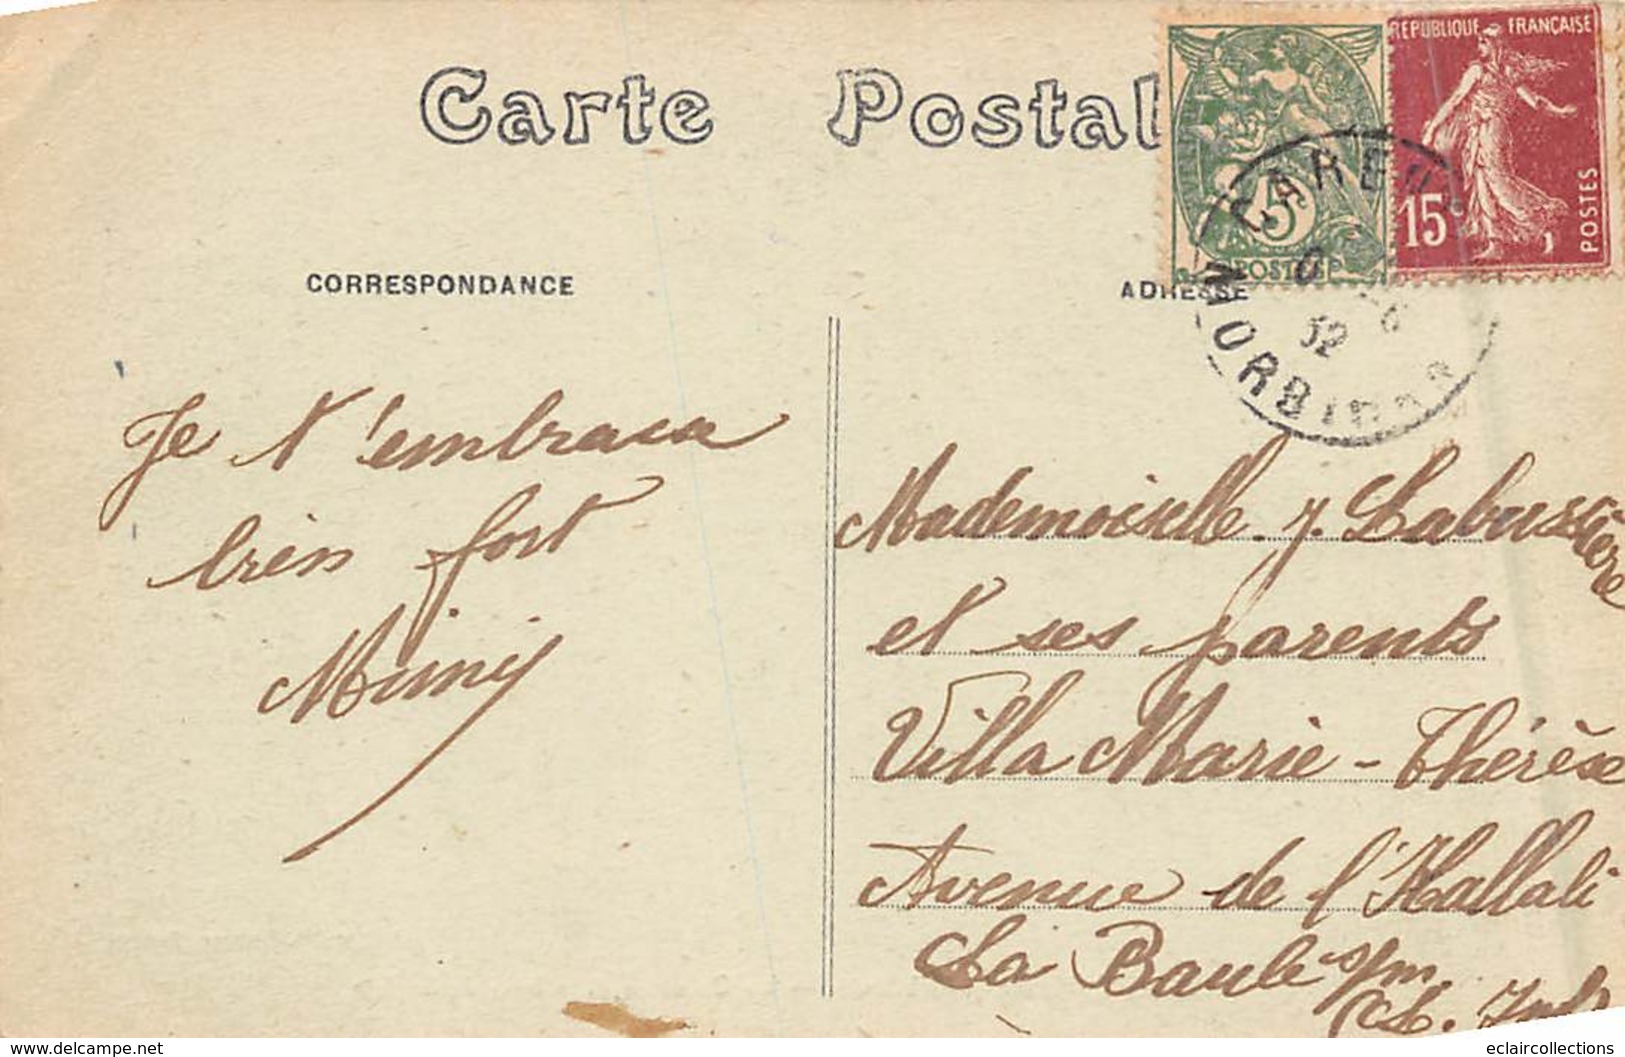 Carte Postal
RÉPUBLIQUE FRANÇAISE
15c
POSTES
5
POSTES
MORBIHAN
32
CORRESPONDANCE
ADRESSE
Je t'embrasse
très fort
Mimi
Mademoiselle J. Labussière
et ses parents
Villa Marie-Thérèse
Avenue de l'Hallali
La Baule s/m
(L. Inf
delcampe.net
eclaircollections